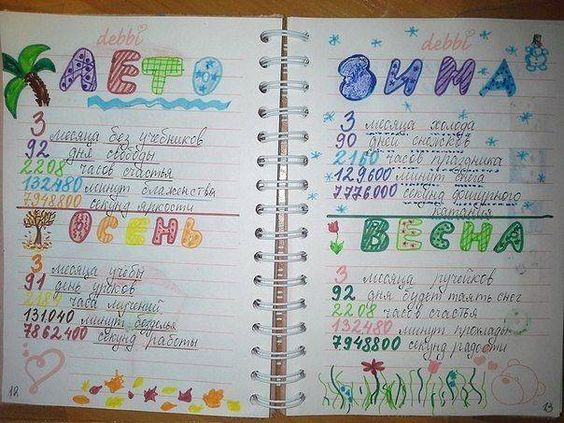 debbi
ЛЕТО
3 месяца без учебников
92 дня свободы
2208 часов счастья
132480 минут блаженства
7948800 секунд яркости
ОСЕНЬ
3 месяца учебы
91 день уроков
2184 часа мучений
131040 минут безделья
7862400 секунд работы
debbi
12
debbi
ЗИМА
3 месяца холода
90 дней снежков
2160 часов праздника
129600 минут снега
7776000 секунд фигурного
катания
ВЕСНА
3 месяца ручейков
92 дня будет таять снег
2208 часов счастья
132480 минут прохлады
7948800 секунд радости
13